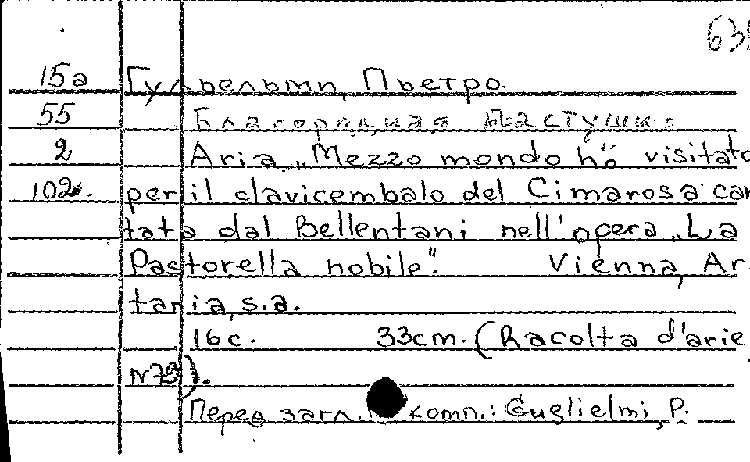 63
15a Гульельми, Пьетро
55 Благородная пастушка
2 Aria „Mezzo mondo hò visitato
102. per il clavicembalo del Cimarosa can
tata dal Bellentani nell'opera „La
Pastorella nobile". Vienna, Ar
taria, s.a.
16c. 33cm. (Racolta d'arie
N73).
Перед загл. комп.: Guglielmi, P.